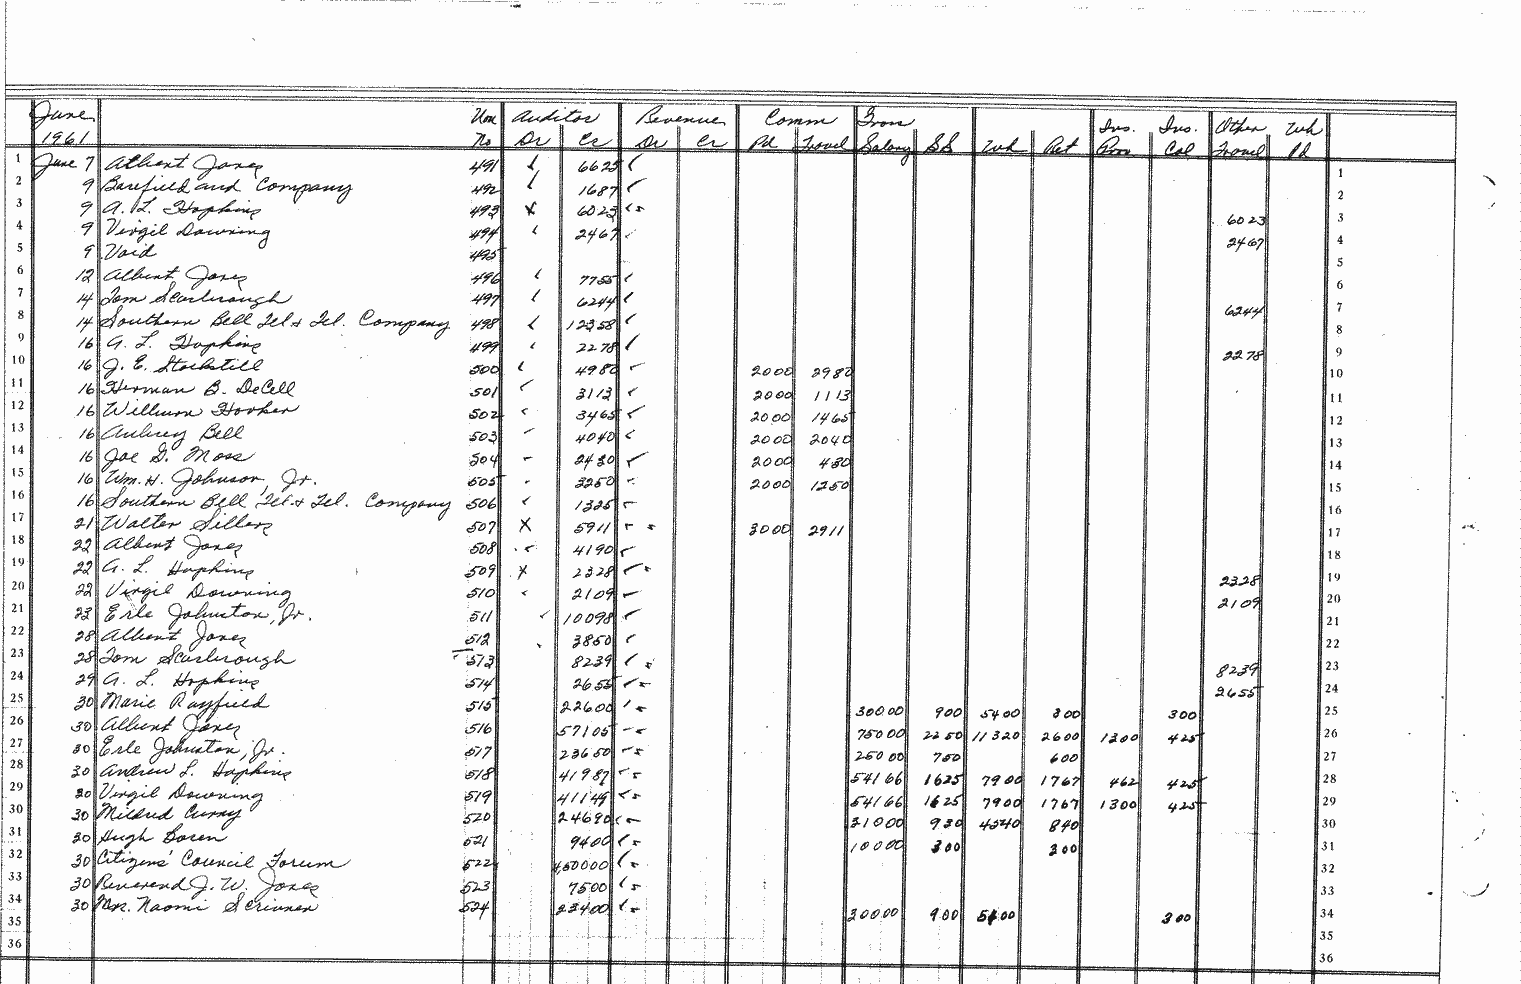 June Von Auditor Revenue Comm Gross Ins. Ins. Other Wh
1961 No Dr Cr Dr Cr Pd Travel Salary SS Wh Ret Prem Col Travel Pd
1 June 7 Albert Jones 491 6625 1
2 9 Barefield and Company 492 1687 2
3 9 A. L. Hopkins 493 X 6023 6023 3
4 9 Virgil Downing 494 2467 2467 4
5 9 Void 495 5
6 12 Albert Jones 496 7755 6
7 14 Tom Scarbrough 497 6244 6244 7
8 14 Southern Bell Tel & Tel. Company 498 12358 8
9 16 A. L. Hopkins 499 2278 2278 9
10 16 J. E. Stockstill 500 4980 2000 2980 10
11 16 Herman B. DeCell 501 3113 2000 1113 11
12 16 Wilburn Hooker 502 3465 2000 1465 12
13 16 Aubrey Bell 503 4040 2000 2040 13
14 16 Joe D. Moss 504 2430 2000 430 14
15 16 Wm. H. Johnson, Jr. 505 3250 2000 1250 15
16 16 Southern Bell Tel & Tel. Company 506 1325 16
17 21 Walter Sillers 507 X 5911 3000 2911 17
18 22 Albert Jones 508 4190 18
19 22 A. L. Hopkins 509 X 2328 2328 19
20 22 Virgil Downing 510 2109 2109 20
21 23 Erle Johnston, Jr. 511 10098 21
22 28 Albert Jones 512 3850 22
23 28 Tom Scarbrough 513 8239 8239 23
24 29 A. L. Hopkins 514 2655 2655 24
25 30 Marie Rayfield 515 22600 30000 900 5400 800 300 25
26 30 Albert Jones 516 57105 75000 2250 11320 2600 1300 425 26
27 30 Erle Johnston, Jr. 517 23650 25000 750 600 27
28 30 Andrew L. Hopkins 518 41987 54166 1625 7900 1767 462 425 28
29 30 Virgil Downing 519 41149 54166 1625 7900 1767 1300 425 29
30 30 Mildred Curry 520 24690 31000 930 4540 840 30
31 30 Hugh Boren 521 9400 10000 300 300 31
32 30 Citizens' Council Forum 522 450000 32
33 30 Reverend J. W. Jones 523 7500 33
34 30 Mrs. Naomi Scrivner 524 23400 30000 900 5400 300 34
35 35
36 36